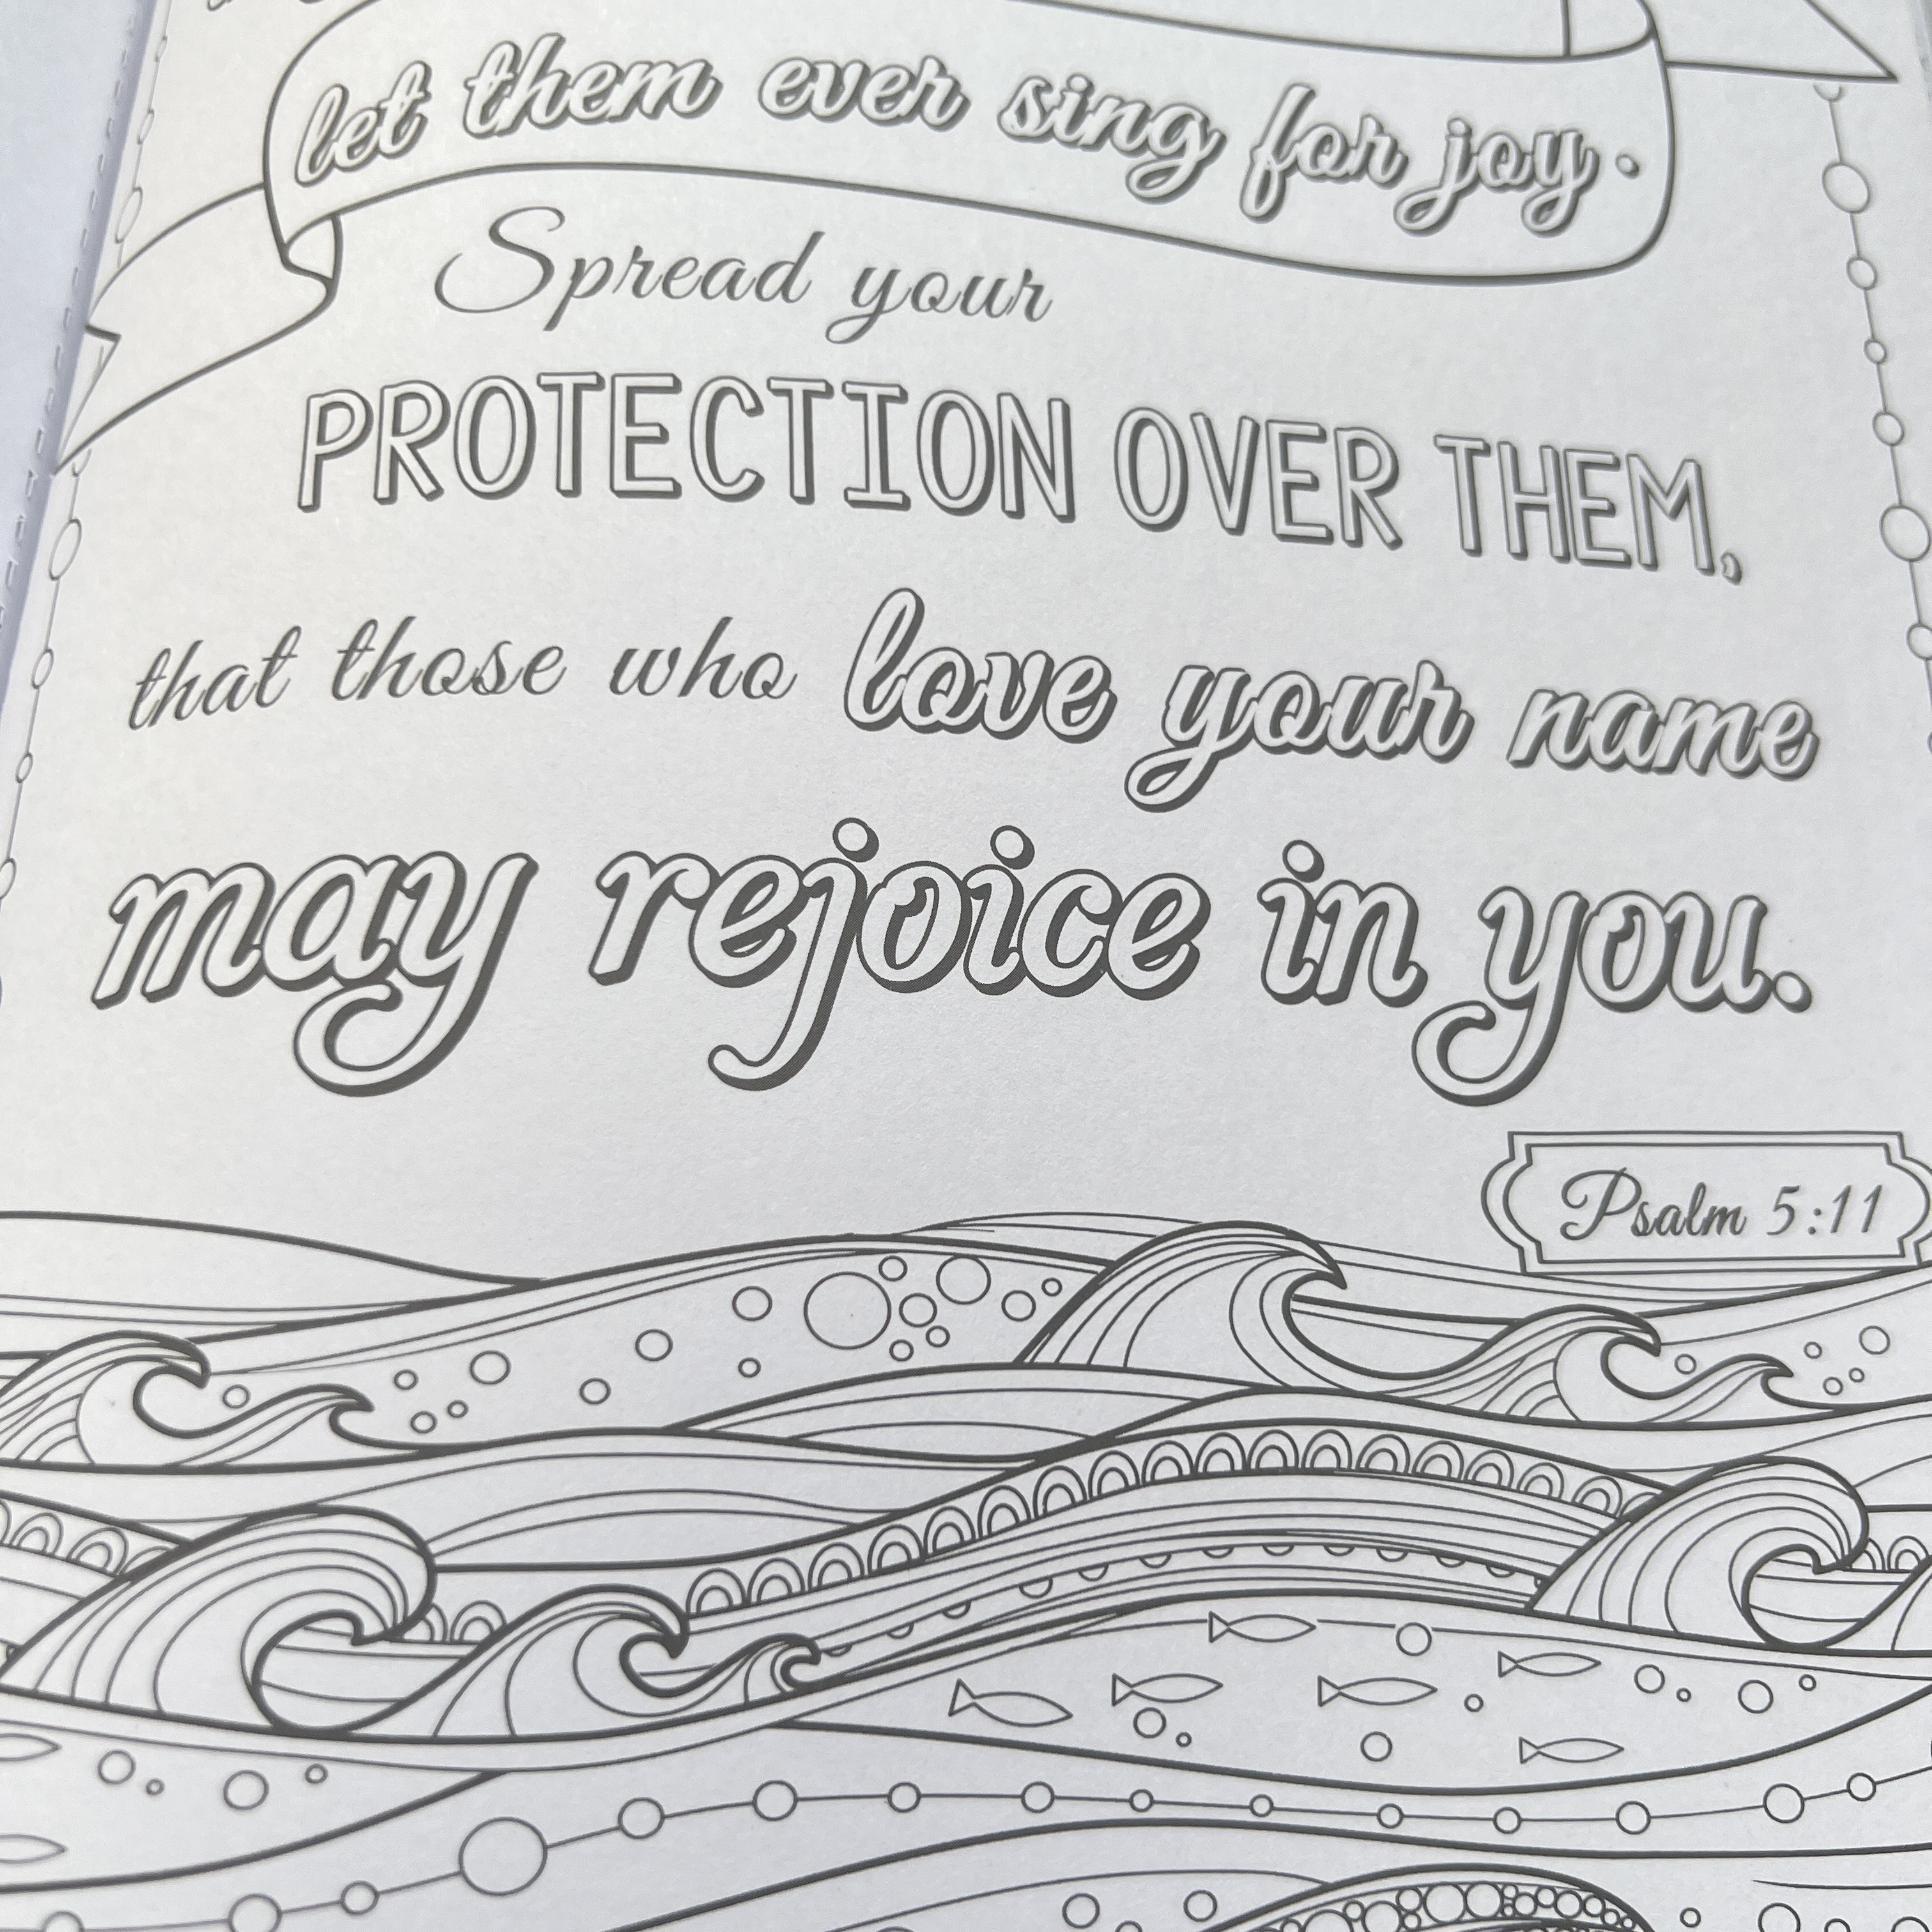 let them ever sing for joy.
Spread your
PROTECTION OVER THEM,
that those who love your name
may rejoice in you.
Psalm 5:11